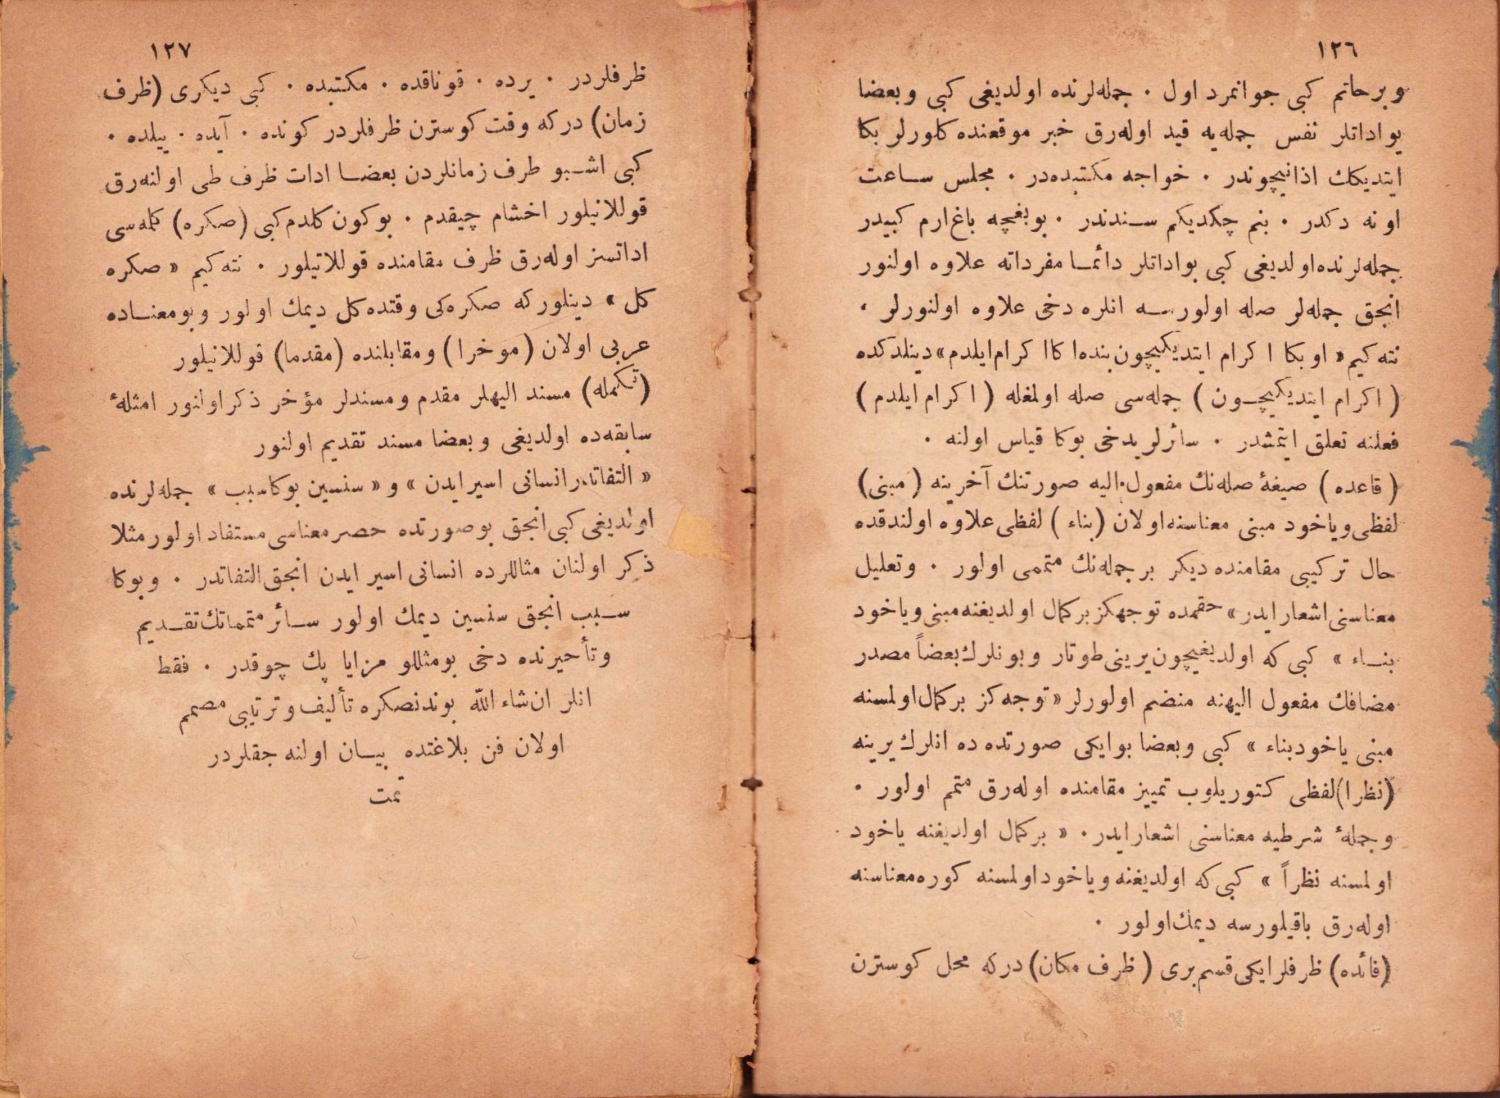 ١٢٦
وبرحاتم كبی جوانمرد اول ٠ جمله‌لرنده اولدیغی كبی وبعضا
بواداتلر نفس جمله‌یه قید اوله‌رق خبر موقعنده كلورلر بكا
ایتدیكك اذا نیچوندر ٠ خواجه مكتبده‌در ٠ مجلس ساعت
اونه دكدر ٠ بنم چكدیكم سندندر ٠ بوبغچه باغ ارم كبیدر
جمله‌لرنده‌اولدیغی كبی بواداتلر دائما مفرداته علاوه اولنور
انجق جمله‌لر صله اولورسه انلره دخی علاوه اولنورلر ٠
نته كیم « او بكا اكرام ایتدیكیچون بنده‌ اكا اكرام ایلدم » دینلدكده
( اكرام ایتدیكیچون ) جمله‌سی صله اولمغله ( اكرام ایلدم )
فعلنه تعلق ایتمشدر ٠ سائرلریدخی بوكا قیاس اولنه ٠
( قاعده ) صیغهٔ صله‌نك مفعول الیه صورتنك آخرینه ( مبنی )
لفظی ویاخود مبنی معناسنه‌اولان ( بناء ) لفظی علاوه اولندقده
حال تركیبی مقامنده دیكر برجمله‌نك متممی اولور ٠ وتعلیل
معناسنی اشعار ایدر « حقمده توجهكز بركمال اولدیغنه مبنی ویاخود
بناء » كبی كه اولدیغیچون یرینی طوتار وبونلرك بعضاً مصدر
مضافك مفعول الیهنه منضم اولورلر « توجه‌كز بركمال اولمسنه
مبنی یاخود بناء » كبی وبعضا بوایكی صورتده ده انلرك یرینه
(نظرا) لفظی كتوریلوب تمییز مقامنده اوله‌رق متمم اولور ٠
وجملهٔ شرطیه معناسنی اشعار ایدر ٠ « بركمال اولدیغنه یاخود
اولمسنه نظراً » كبی كه اولدیغنه ویاخود اولمسنه كوره معناسنه
اوله‌رق باقیلورسه دیمك اولور ٠
(فائده) ظرفلر ایكی قسم بری ( ظرف مكان) دركه محل كوسترن
١٢٧
ظرفلردر ٠ یرده ٠ قوناقده ٠ مكتبده ٠ كبی دیكری (ظرف
زمان) دركه وقت كوسترن ظرفلردر كونده ٠ آیده ٠ ییلده ٠
كبی اشبو ظرف زمانلردن بعضا ادات ظرف طی اولنه‌رق
قوللانیلور اخشام چیقدم ٠ بوكون كلدم كبی (صكره) كله‌سی
اداتسز اوله‌رق ظرف مقامنده قوللانیلور ٠ نته كیم « صكره
كل » دینلوركه صكره‌كی وقتده كل دیمك اولور وبومعناده
عربی اولان (موخرا) ومقابلنده (مقدما) قوللانیلور
(تكمله) مسند الیهلر مقدم ومسندلر مؤخر ذكر اولنور امثلهٔ
سابقه‌ده اولدیغی وبعضا مسند تقدیم اولنور
« التفاتدر انسانی اسیر ایدن » و « سنسین بوكا سبب » جمله‌لرنده
اولدیغی كبی انجق بوصورتده حصر معناسی مستفاد اولور مثلا
ذكر اولنان مثاللرده انسانی اسیر ایدن انجق التفاتدر ٠ وبوكا
سبب انجق سنسین دیمك اولور سائر متمماتك تقدیم
وتأخیرنده دخی بومثللو مزایا پك چوقدر ٠ فقط
انلر ان‌شاء الله بوندنصكره تألیف وترتیبی مصمم
اولان فن بلاغتده بیان اولنه جقلردر
تمت